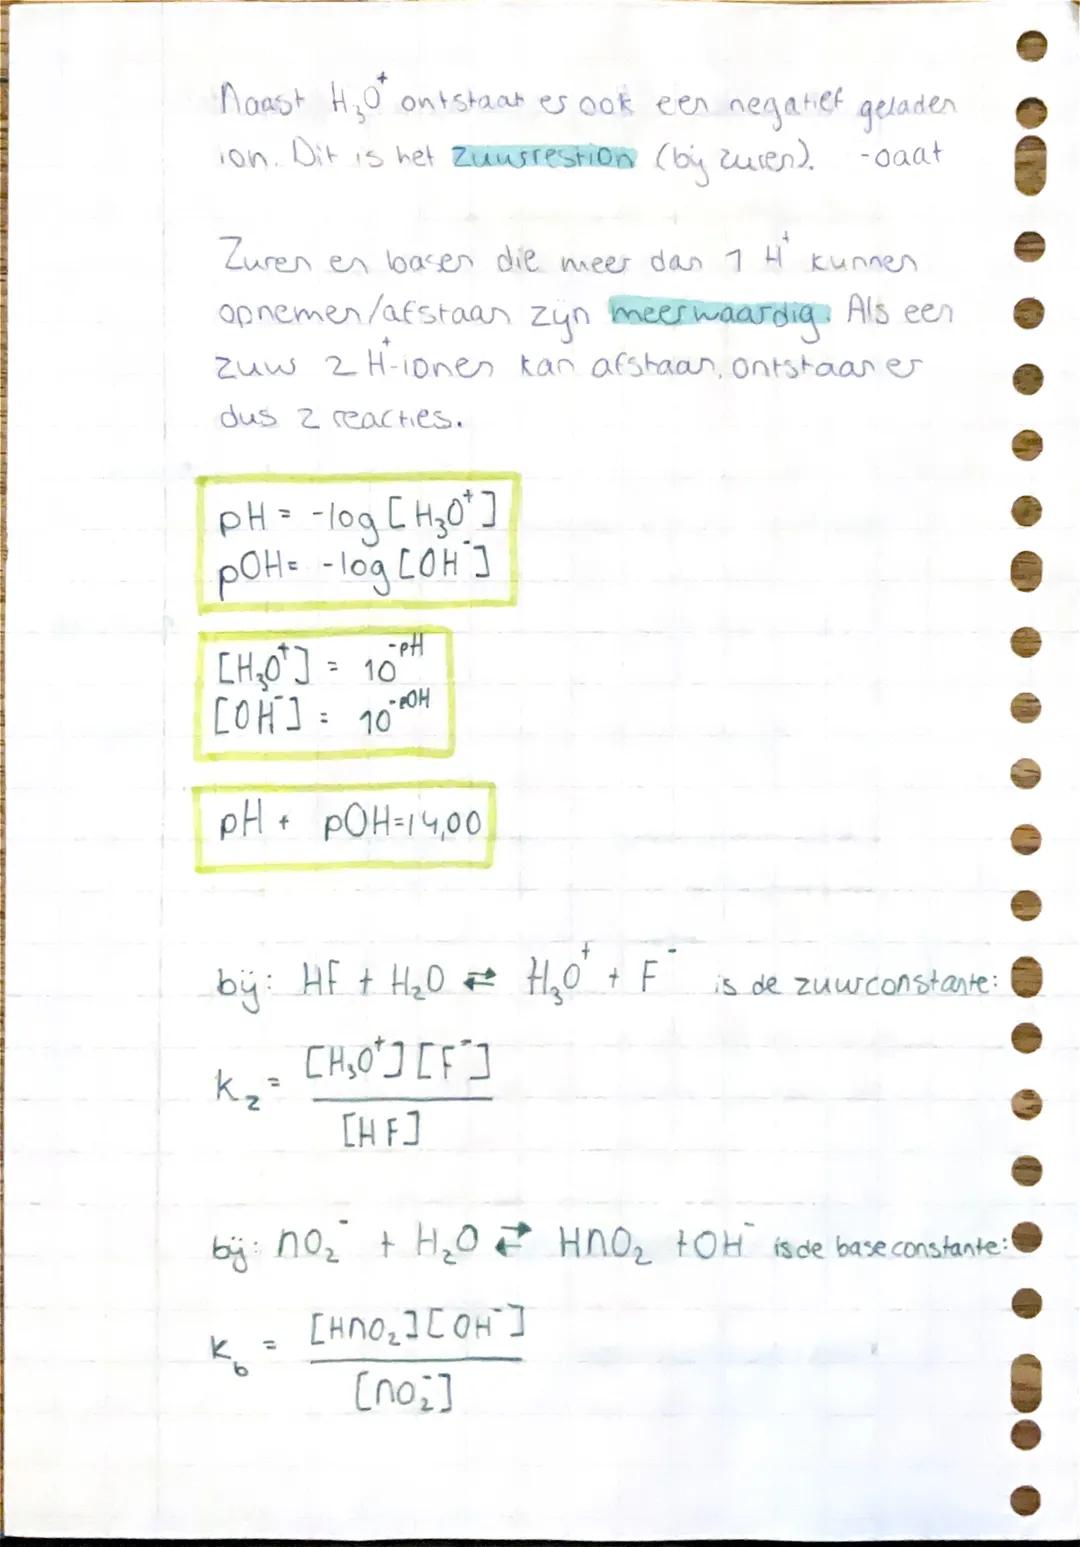 Naast H₃O⁺ ontstaat er ook een negatief geladen
ion. Dit is het zuurrestion (bij zuren). -oaat
Zuren en basen die meer dan 1 H⁺ kunnen
opnemen/afstaan zijn meerwaardig. Als een
zuur 2 H⁺-ionen kan afstaan, ontstaan er
dus 2 reacties.
pH = -log [H₃O⁺]
pOH = -log [OH⁻]
[H₃O⁺] = 10^-pH
[OH⁻] = 10^-pOH
pH + pOH=14,00
bij: HF + H₂O ⇄ H₃O⁺ + F⁻ is de zuurconstante:
Kz = [H₃O⁺][F⁻]
[HF]
bij: NO₂⁻ + H₂O ⇄ HNO₂ + OH⁻ is de baseconstante:
Kb = [HNO₂][OH⁻]
[NO₂⁻]